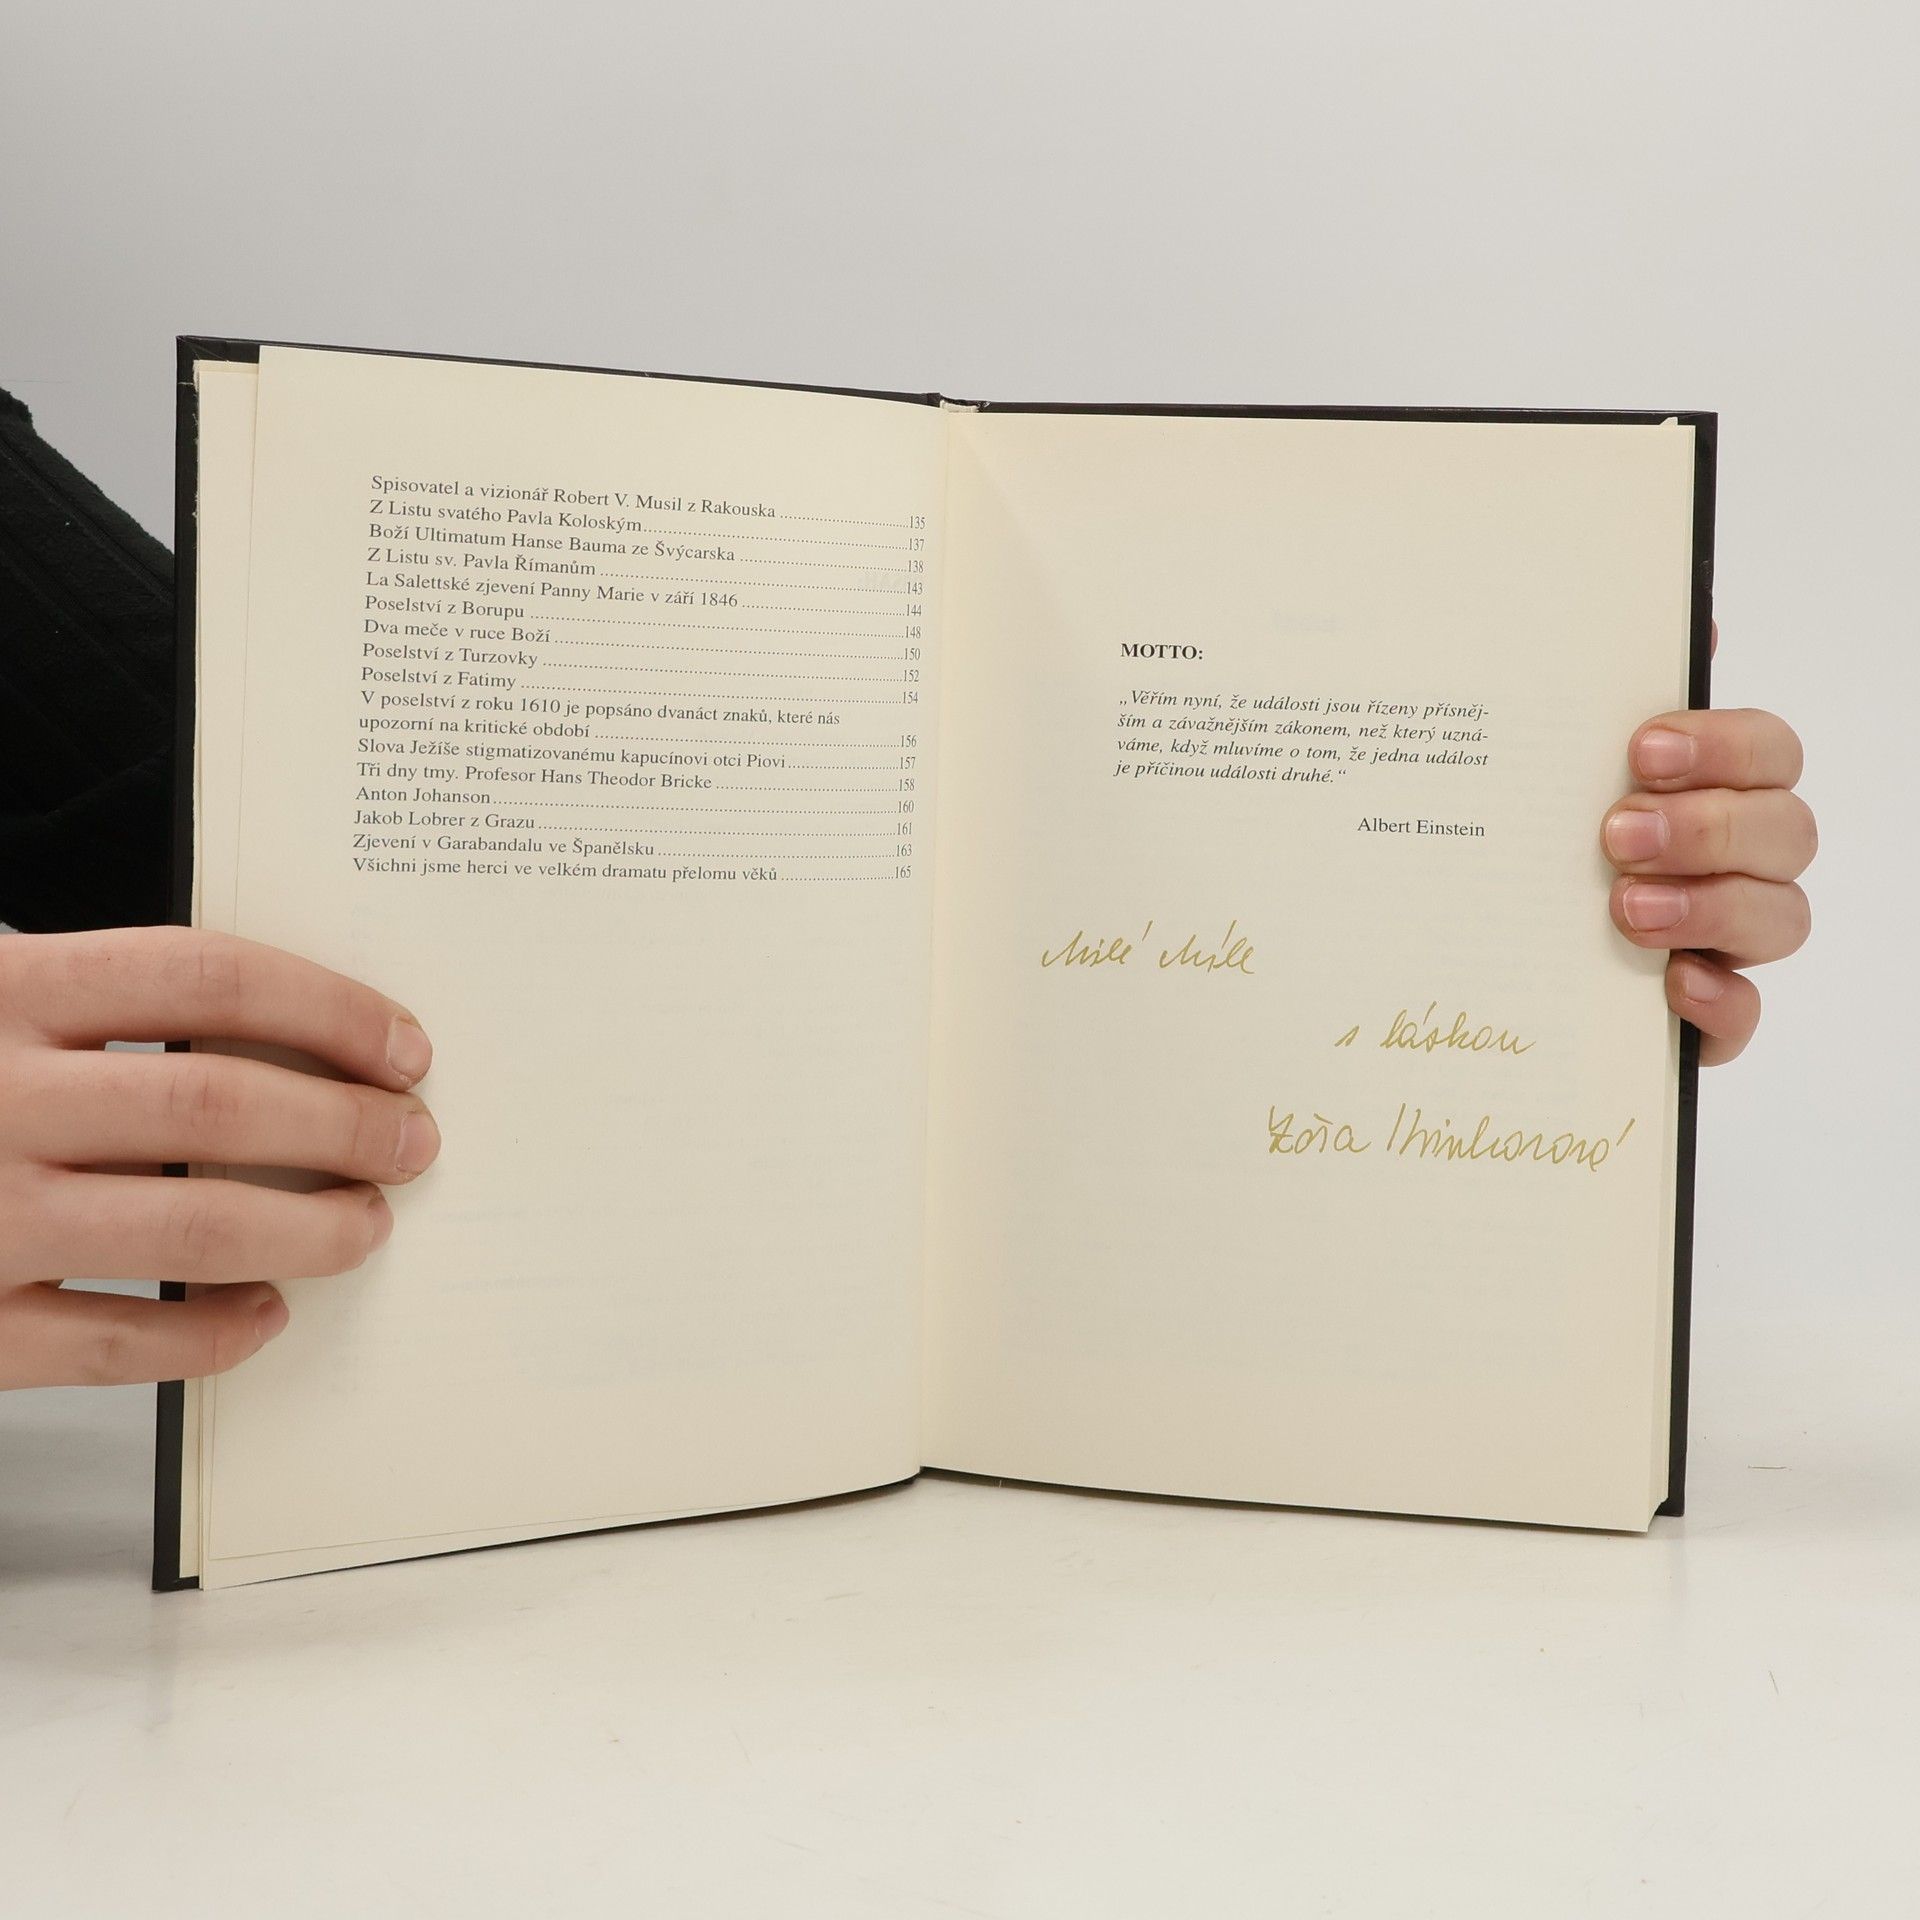 Spisovatel a vizionář Robert V. Musil z Rakouska ........................135
Z Listu svatého Pavla Koloským................................................137
Boží Ultimatum Hanse Bauma ze Švýcarska ................................138
Z Listu sv. Pavla Římanům ........................................................143
La Salettské zjevení Panny Marie v září 1846 ..............................144
Poselství z Borupu ....................................................................148
Dva meče v ruce Boží ................................................................150
Poselství z Turzovky ..................................................................152
Poselství z Fatimy .....................................................................154
V poselství z roku 1610 je popsáno dvanáct znaků, které nás
upozorní na kritické období ........................................................156
Slova Ježíše stigmatizovanému kapucínovi otci Piovi.....................157
Tři dny tmy. Profesor Hans Theodor Bricke ..................................158
Anton Johanson.........................................................................160
Jakob Lobrer z Grazu .................................................................161
Zjevení v Garabandalu ve Španělsku ...........................................163
Všichni jsme herci ve velkém dramatu přelomu věků .....................165
MOTTO:
„Věřím nyní, že události jsou řízeny přísněj-
ším a závažnějším zákonem, než který uzná-
váme, když mluvíme o tom, že jedna událost
je příčinou události druhé.“
Albert Einstein
Milé Míle
s láskou